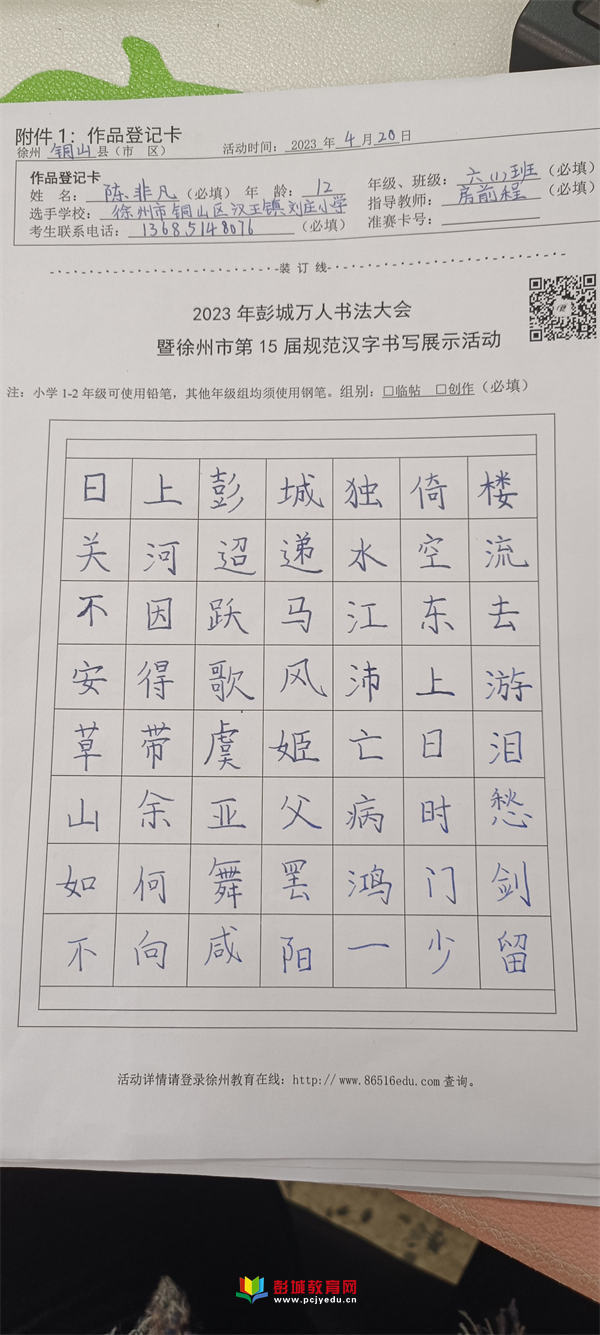 附件1：作品登记卡
徐州 铜山 县（市 区） 活动时间：2023 年 4 月 20 日
作品登记卡
姓 名：陈非凡（必填） 年 龄：12 年级、班级：六(1)班（必填）
选手学校：徐州市铜山区汉王镇刘庄小学 指导教师：房前程（必填）
考生联系电话：13685148076（必填） 准赛卡号：
装 订 线
2023 年彭城万人书法大会
暨徐州市第 15 届规范汉字书写展示活动
注：小学1-2年级可使用铅笔，其他年级组均须使用钢笔。组别：□临帖 □创作（必填）
日上彭城独倚楼
关河迢递水空流
不因跃马江东去
安得歌风沛上游
草带虞姬亡日泪
山余亚父病时愁
如何舞罢鸿门剑
不向咸阳一少留
活动详情请登录徐州教育在线：http://www.86516edu.com 查询。
彭城教育网
www.pcjyedu.cn